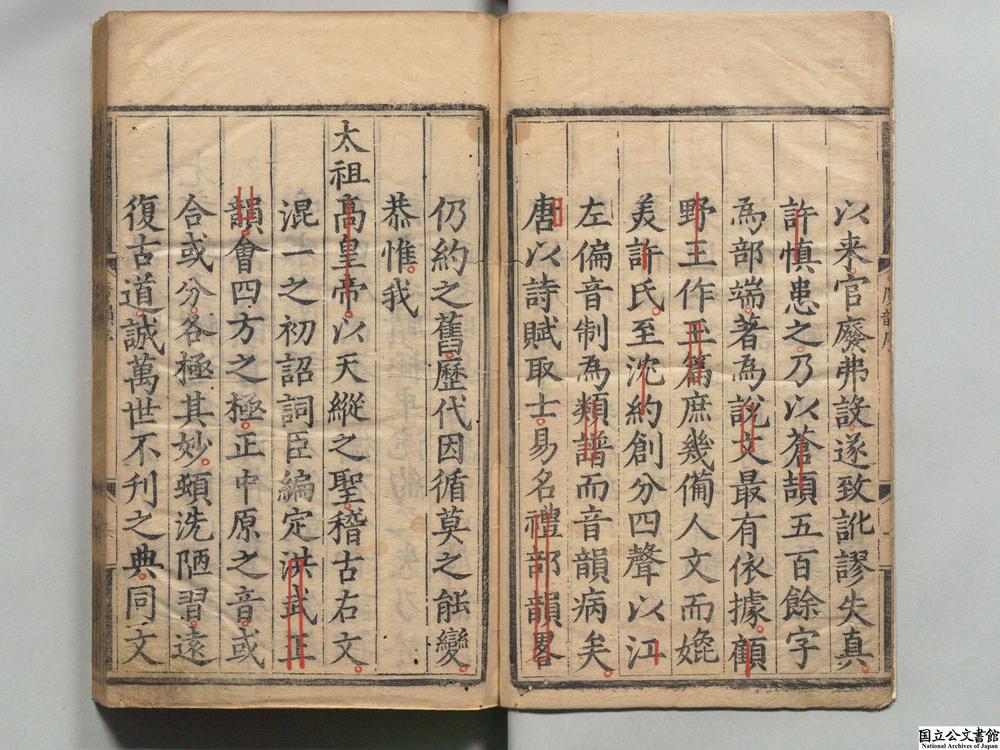 以来官廢弗設遂致訛謬失真
許慎患之乃以蒼頡五百餘字
為部端著為說文最有依據顧
野王作玉篇庶幾備人文而媲
美許氏至沈約創分四聲以江
左偏音制為類譜而音韻病矣
唐以詩賦取士易名禮部韻畧
仍約之舊歷代因循莫之能變
恭惟我
太祖高皇帝以天縱之聖稽古右文
混一之初詔詞臣編定洪武正
韻會四方之極正中原之音或
合或分各極其妙頓洗陋習遠
復古道誠萬世不刊之典同文
国立公文書館
National Archives of Japan